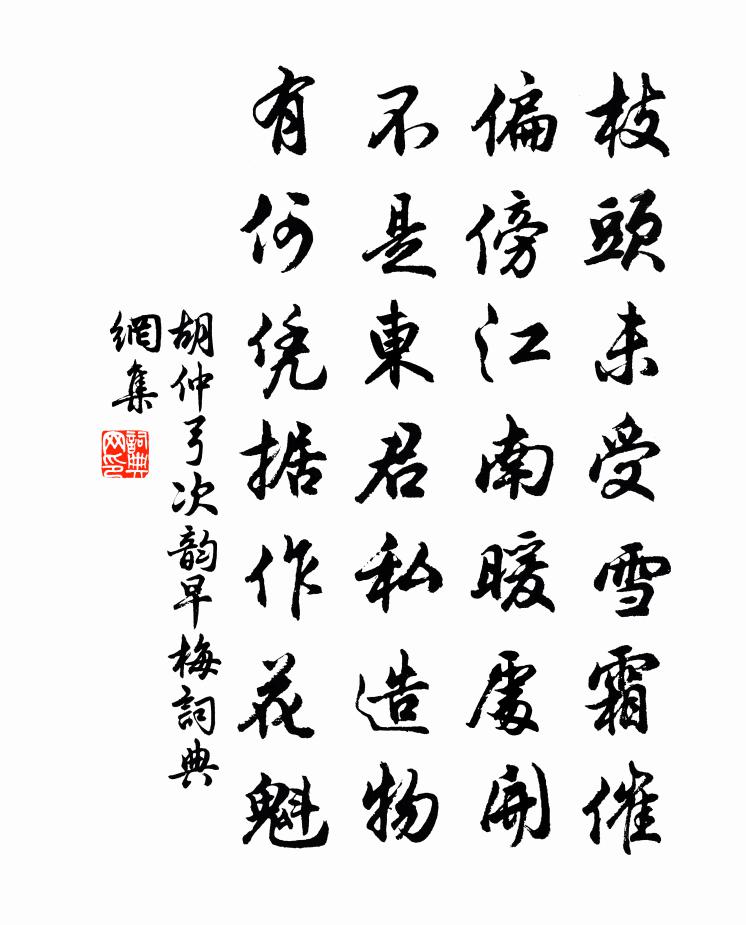 枝頭未受雪霜催
偏傍江南暖處開
不是東君私造物
有何凭据作花魁
胡仲弓次韵早梅詞典
網集
詞典网印